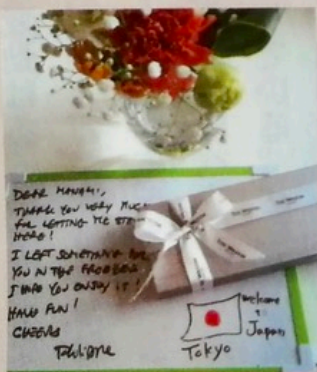 DEAR MANAMI,
THANK YOU VERY MUCH
FOR LETTING ME STAY
HERE!
I LEFT SOMETHING FOR
YOU IN THE FREEZER.
I HOPE YOU ENJOY IT!
HAVE FUN!
CHEERS
Welcome
Japan
Tokyo